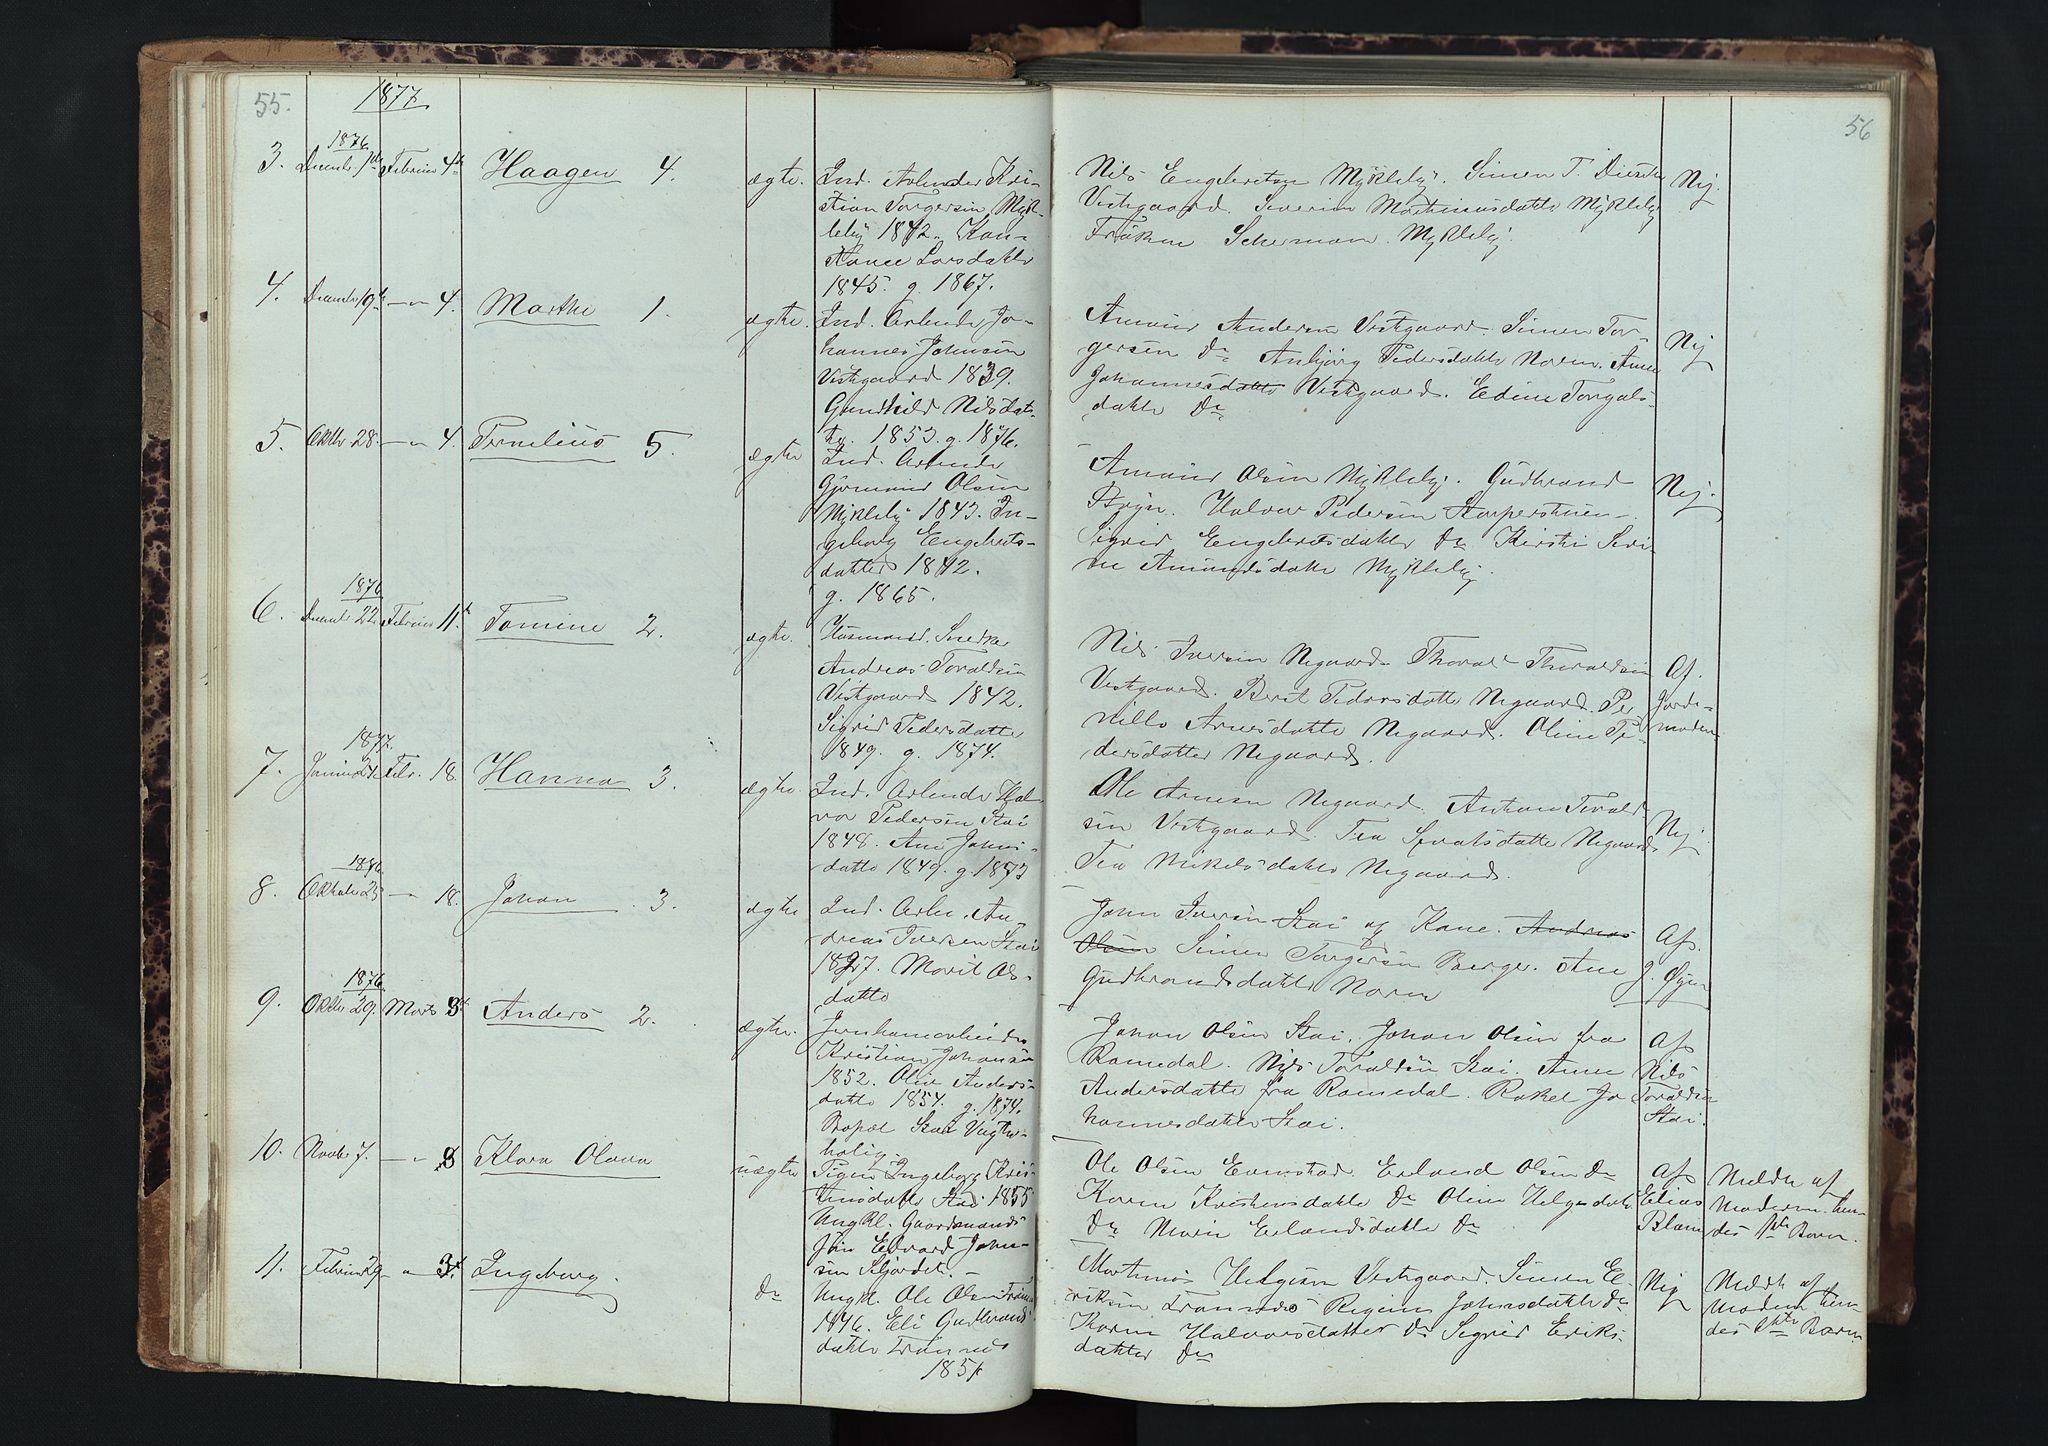 55.
1877
1876
3. Decembr 1ste Februar 4de Haagen 4. ægte. Ind. Arbeider Kri-
stian Torgersen Mykl-
leby 1842. Kon-
stance Larsdatter
1845. g. 1867.
4. Decembr 19de — " 4. Marthe 1. ægte. Ind. Arbeider Jo-
hannes Johnsen
Vestgaard 1839.
Gundhild Nilsdat-
ter. 1853. g. 1876.
5. Oktbr 28. — " 4. Pernelius 5. ægte Ind. Arbeider
Gjermund Olsen
Mykleby 1843. In-
geborg Engebrets-
datter 1842.
g. 1865.
1876
6. Decembr 22. Februar 11te Tomine 2. ægte. Husmand. Snedker
Andreas Toraldsen
Vestgaard 1842.
Sigrid Pedersdatter
1849. g. 1874.
1877.
7. Januar 21 Febr. 18. Hanna 3. ægte. Ind. Arbeider Hal-
vor Pedersen Stai
1848. Ane Johns-
datter 1849. g. 1873
1876.
8. Oktober 25 — " 18. Johan 3. ægte Ind. Arbei. An-
dreas Iversen Stai
1837. Marit Ols-
datter
1876.
9. Oktbr 29. Marts 3. Anders 2. ægte. Jernbanearbeider
Kristian Johansen
1852. Oline Anders-
datter 1854. g. 1874.
Bopæl Stai Vogter-
bolig.
10. Novbr 7. — " 3 Klara Olava uægte Pigen Ingeborg Kris-
tensdatter Stai 1855
Ungkl. Gaardmands-
søn Edvard John-
sen Skjærdet.
11. Februar 29 — " 3. Ingeborg. Do Ungk. Ole Olsen Trønnes
1846. Eli Gudbrands
datter Trønnes
1851
56
Nils Engebretsen Mykleby. Simen T.
Vestgaard. Severine Martinusdatter Mykleby
Frøken Scherman. Mykleby. Nej.
Amund Andersen Vestgaard. Simen Tor-
gersen Do Anbjørg Pedersdatter Noren. Anne
Johannesdatter Vestgaard. Edine Torgals-
datter Do Nej
Amund Olsen Mykleby. Gudbrand
Halvor Pedersen
Sigrid Engebretsdatter Do Kirsti Seri-
ne Amundsdatter Mykleby. Nej.
Nils Iversen Negaard. Thorald Thoraldsen
Vestgaard. Berit Pedersdatter Negaard. Per-
nille Arnesdatter Negaard. Oline Pe-
dersdatter Negaard. Af. Jorde-
moderen
Ole Arnesen Negaard. Anton Torald-
sen Vestgaard. Tea Negaard
Tea Mikkelsdatter Negaard. Nej.
John Iversen Stai og Kone. Andreas
Olsen Simen Torgersen Berger. Ane
Gudbrandsdatter Noren Af. J. Øyen
Johan Olsen Stai. Johan Olsen fra
Romedal. Nils Toraldsen Stai. Anne
Andersdatter fra Romedal. Rakel Jo
hannesdatter Stai. Af Nils Toraldsen Stai.
Ole Olsen Evenstad. Erland Olsen Do
Karen Kristensdatter Do Oline Helgesdatter
Do Marie Erlandsdatter Do Af Elias Meldt af
Moderen. hen-
des 1ste Barn.
Martinus Helgesen Vestgaard. Simen E-
riksen Trønnes Regine Johnsdatter Do
Karen Halvorsdatter Do Sigrid Eriks-
datter Do Nej Meldt af
Moderen hen-
des Barn